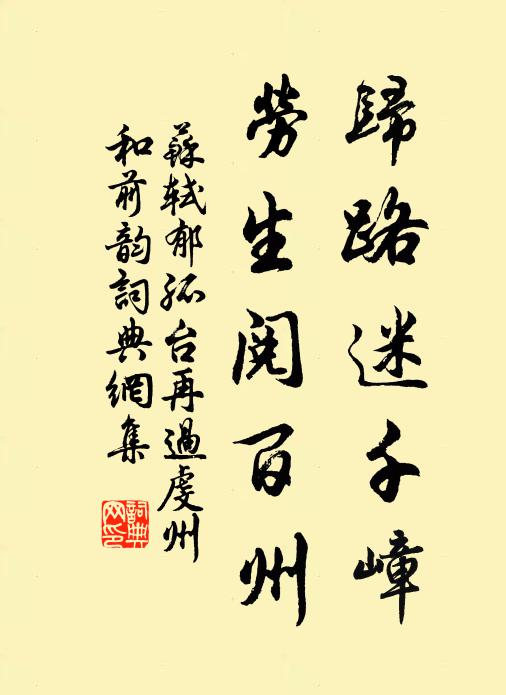 歸路迷千嶂
勞生閱百州
蘇軾郁孤台再過虔州
和前韵詞典網集
詞典
网印